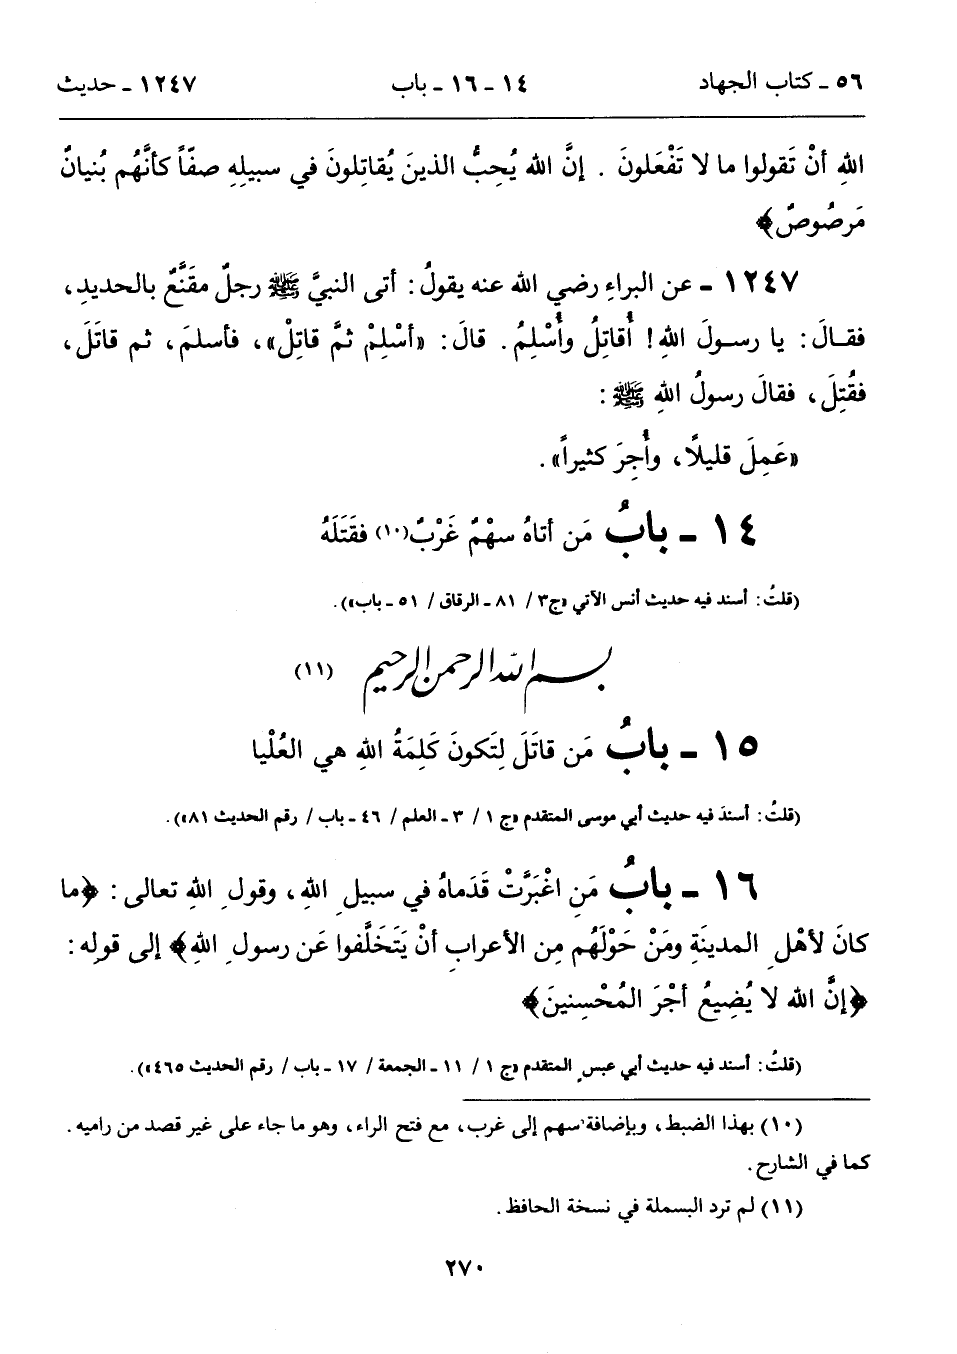 ٥٦ ـ كتاب الجهاد ١٤ ـ ١٦ ـ باب ١٢٤٧ ـ حديث
اللهِ أنْ تَقولوا ما لا تَفْعَلونَ . إنَّ الله يُحِبُّ الذينَ يُقاتِلونَ في سبيلِهِ صفّاً كأنَّهُم بُنيانٌ
مَرصُوصٌ﴾
١٢٤٧ ـ عن البراءِ رضي الله عنه يقولُ: أتى النبيَّ ﷺ رجلٌ مقَنَّعٌ بالحديدِ،
فقـالَ: يا رسـولَ اللهِ! أُقاتِلُ وأُسْلِمُ. قالَ: «أسْلِمْ ثمَّ قاتِلْ»، فأسلمَ، ثم قاتَلَ،
فقُتِلَ، فقالَ رسولُ اللهِ ﷺ :
«عَمِلَ قليلًا، وأُجِرَ كثيراً».
١٤ ـ بابُ مَن أتاهُ سهْمٌ غَرْبٌ(١٠) فقَتَلَهُ
(قلتُ: أسند فيه حديث أنس الآتي «ج٣/ ٨١ ـ الرقاق/ ٥١ ـ باب»).
بسم الله الرحمن الرحيم (١١)
١٥ ـ بابُ مَن قاتَلَ لِتَكونَ كَلِمَةُ اللهِ هي العُلْيا
(قلتُ: أسندَ فيه حديث أبي موسى المتقدم «ج ١/ ٣ ـ العلم/ ٤٦ ـ باب/ رقم الحديث ٨١»).
١٦ ـ بابُ مَنِ اغْبَرَّتْ قَدَماهُ في سبيلِ اللهِ، وقولِ اللهِ تعالى: ﴿ما
كانَ لأهْلِ المدينَةِ ومَنْ حَوْلَهُم مِن الأعرابِ أنْ يَتَخَلَّفوا عَن رسولِ اللهِ﴾ إلى قولِه:
﴿إنَّ الله لا يُضِيعُ أجْرَ المُحْسِنينَ﴾
(قلتُ: أسند فيه حديث أبي عبسٍ المتقدم «ج ١/ ١١ ـ الجمعة/ ١٧ ـ باب/ رقم الحديث ٤٦٥»).
(١٠) بهذا الضبط، وبإضافة سهم إلى غرب، مع فتح الراء، وهو ما جاء على غير قصد من راميه.
كما في الشارح.
(١١) لم ترد البسملة في نسخة الحافظ.
٢٧٠